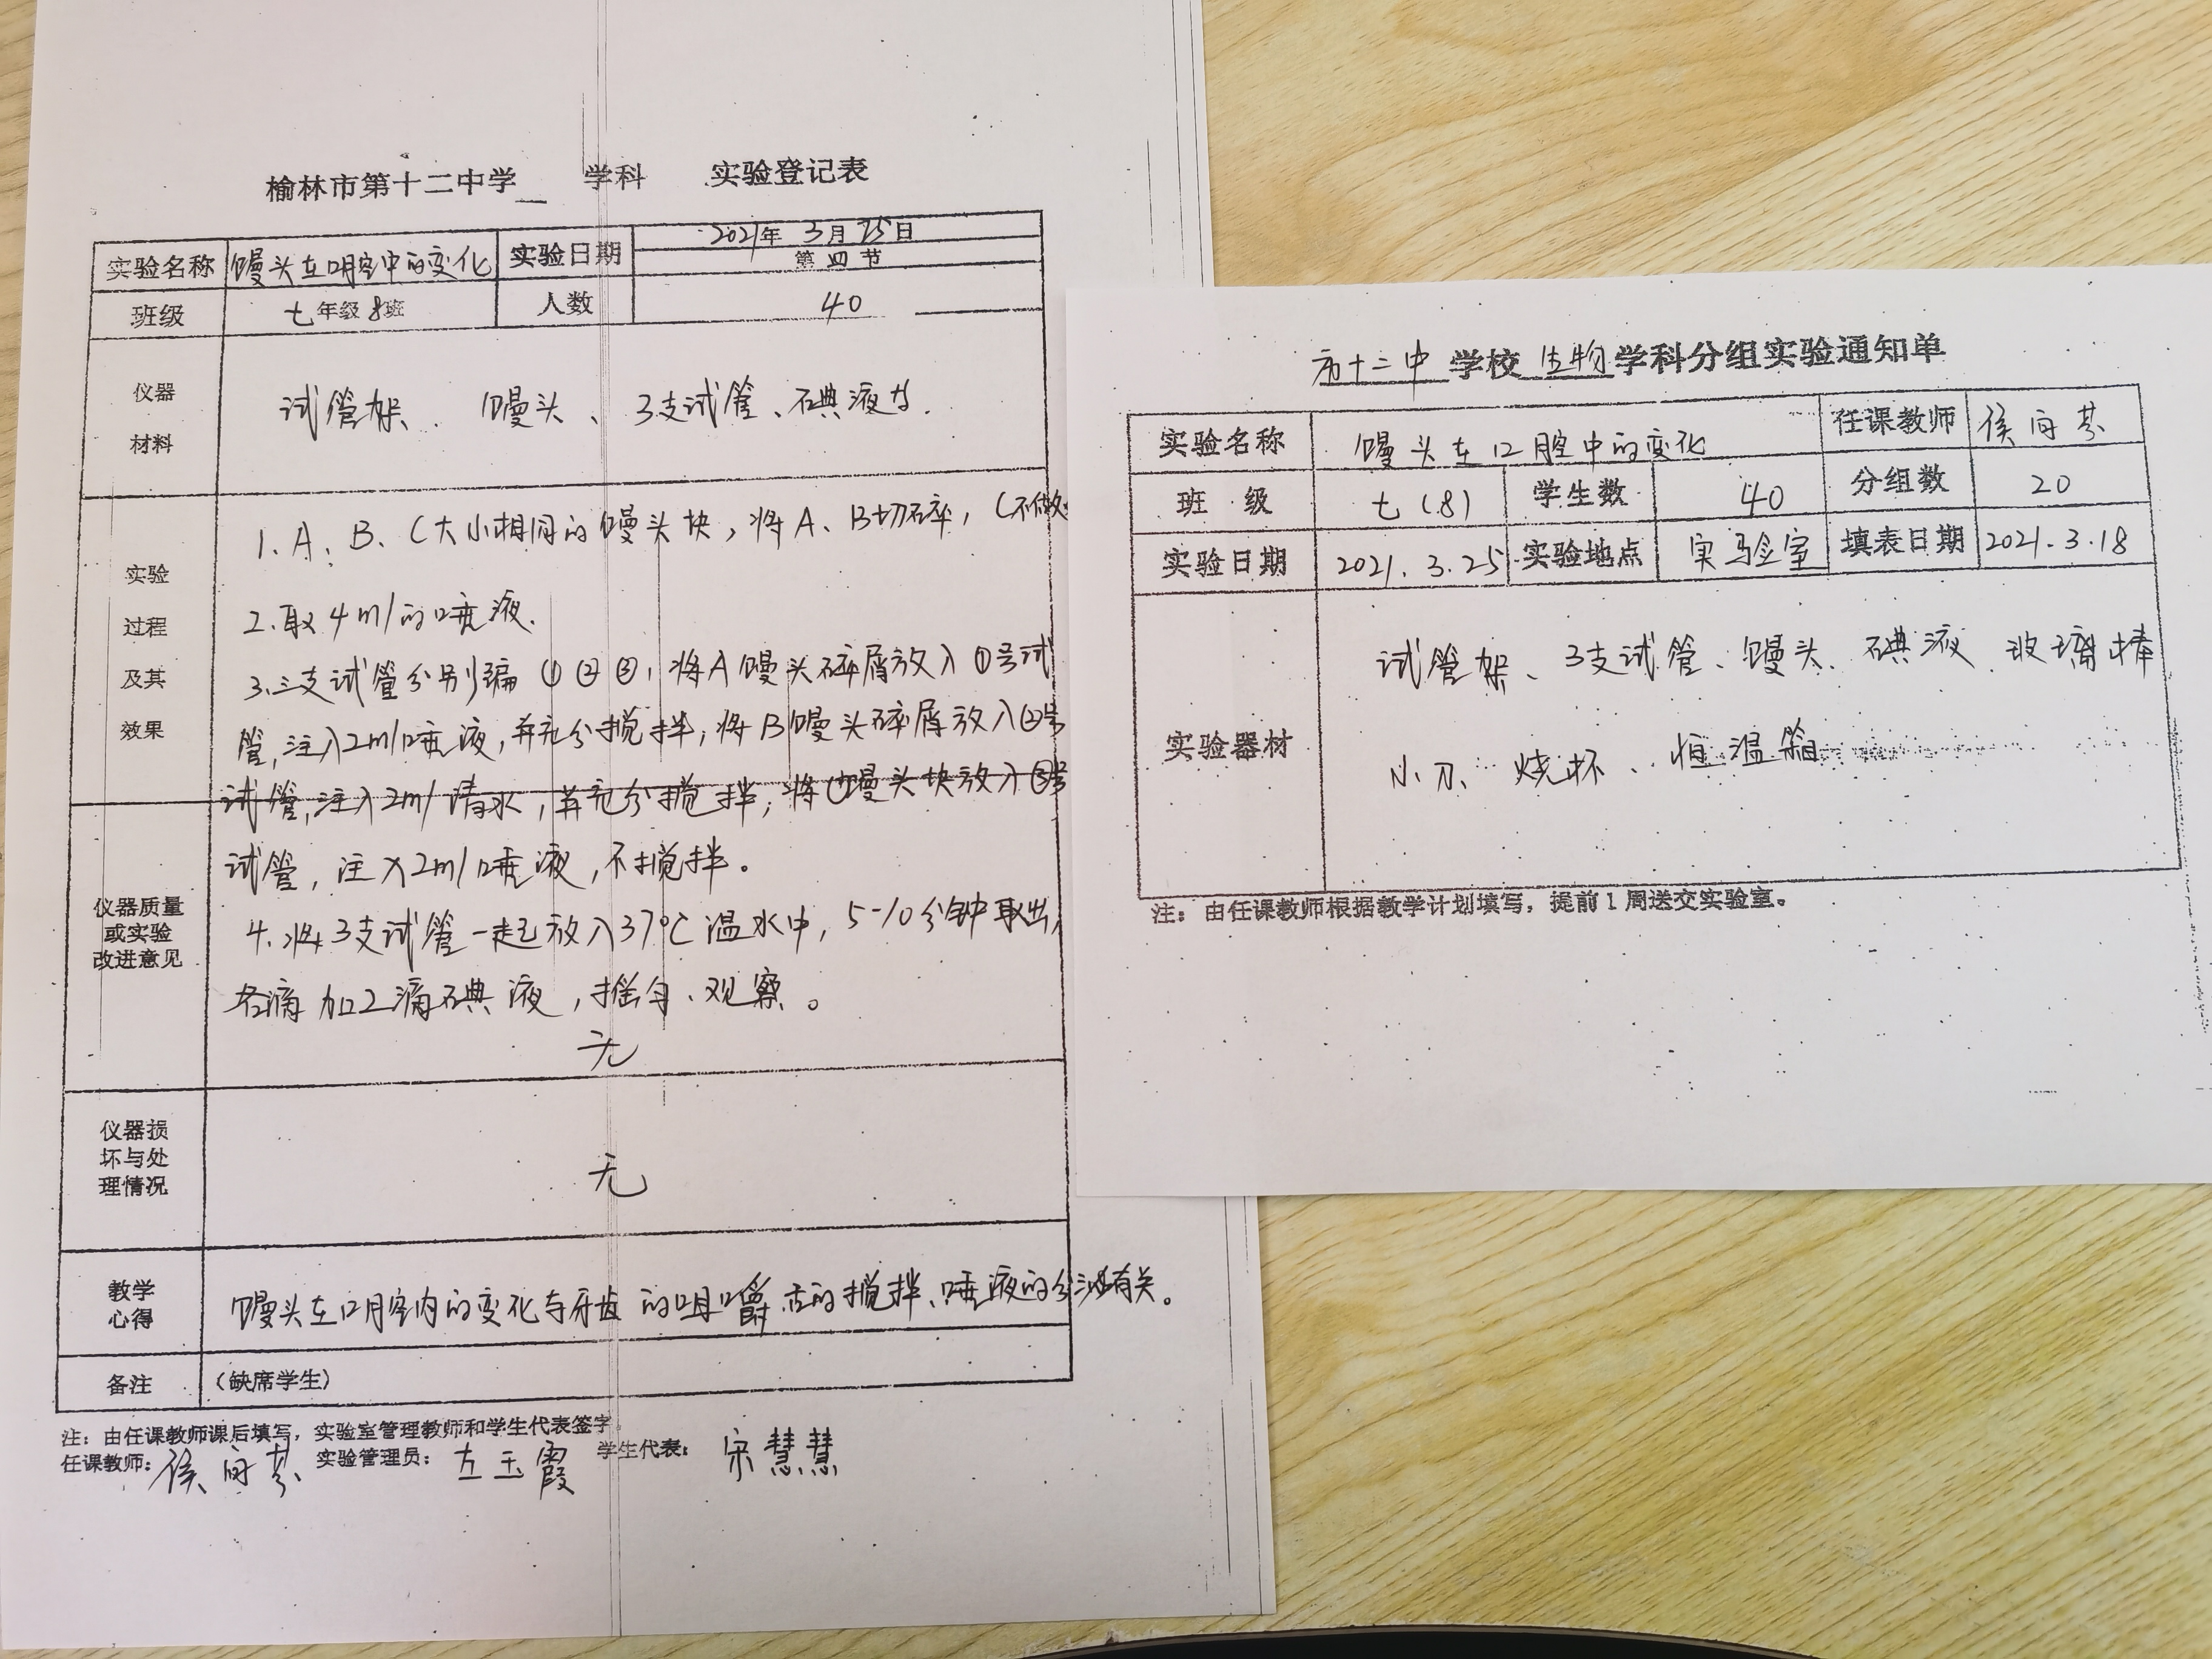 榆林市第十二中学 学科 实验登记表
实验名称 馒头在口腔中的变化 实验日期 2021年 3月 25日
第 四 节
班级 七年级 8班 人数 40
仪器
材料
试管架、馒头、3支试管、碘液等.
实验
过程
及其
效果
1. A、B、C大小相同的馒头块，将A、B切碎，C不做
2. 取4ml的唾液.
3. 三支试管分别编①②③，将A馒头碎屑放入①号试
管，注入2ml唾液，并充分搅拌；将B馒头碎屑放入②号
试管，注入2ml清水，并充分搅拌；将C馒头块放入③号
试管，注入2ml唾液，不搅拌。
4. 将3支试管一起放入37℃温水中，5-10分钟取出，
各滴加2滴碘液，摇匀、观察。
仪器质量
或实验
改进意见
无
仪器损
坏与处
理情况
无
教学
心得
馒头在口腔内的变化与牙齿的咀嚼、舌的搅拌、唾液的分泌有关。
备注 (缺席学生)
注：由任课教师课后填写，实验室管理教师和学生代表签字。
任课教师： 侯向芬 实验管理员： 左玉霞 学生代表： 宋慧慧
市十二中 学校 生物 学科分组实验通知单
实验名称 馒头在口腔中的变化 任课教师 侯向芬
班 级 七(8) 学生数 40 分组数 20
实验日期 2021.3.25 实验地点 实验室 填表日期 2021.3.18
实验器材
试管架、3支试管、馒头、碘液、玻璃棒
小刀、烧杯、恒温箱
注：由任课教师根据教学计划填写，提前1周送交实验室。